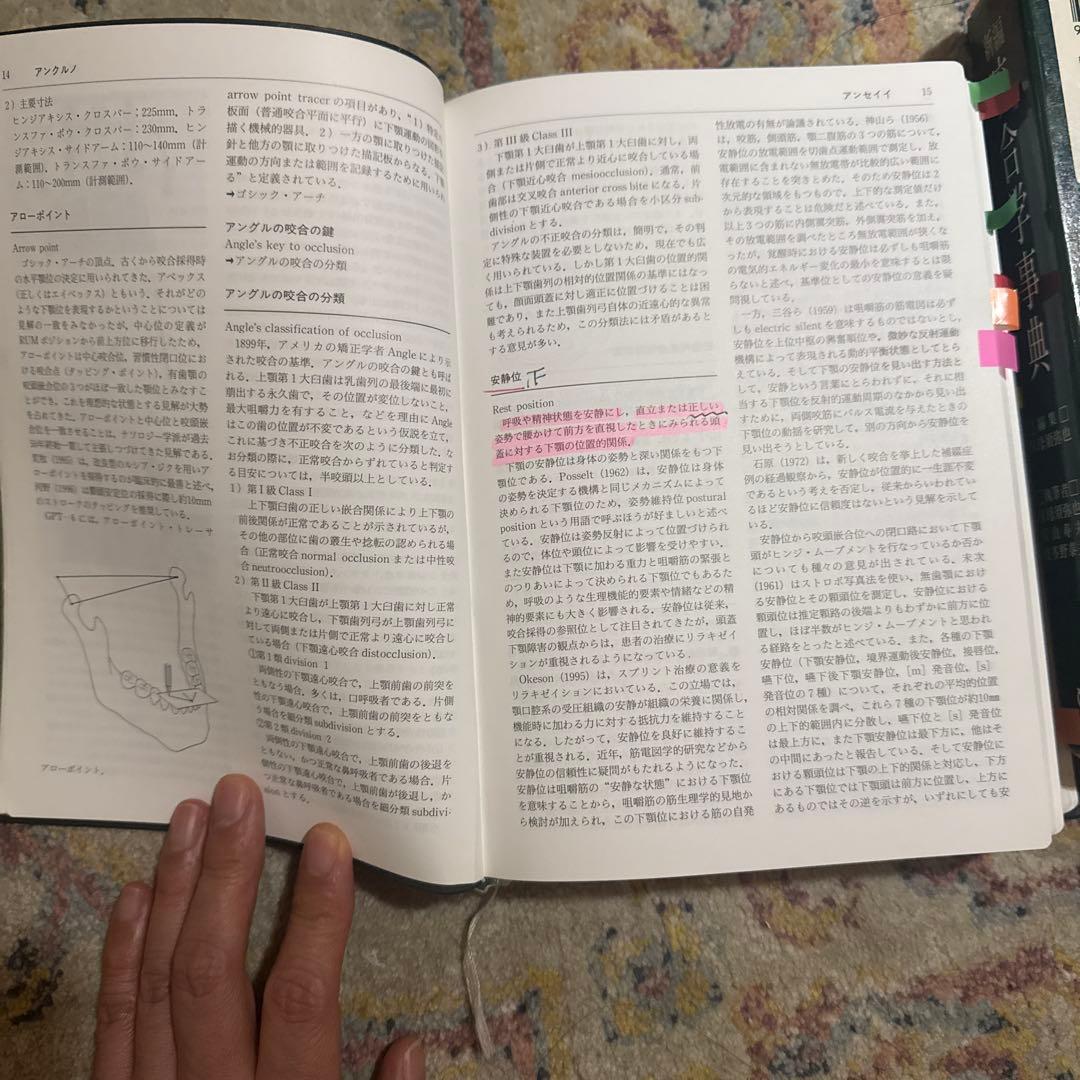 14 アンクルノ
2）主要寸法
ヒンジアキシス・クロスバー；225mm，トラ
ンスファ・ボウ・クロスバー：230mm，ヒン
ジアキシス・サイドアーム：110〜140mm（計
測範囲)．トランスファ・ボウ・サイドアー
ム：110〜200mm（計測範囲)．
アローポイント
Arrow point
ゴシック・アーチの頂点．古くから咬合採得時
の水平顎位の決定に用いられてきた．アペックス
（正しくはエイペックス）ともいう．それがどの
ような下顎位を表現するかということについては
見解の一致をみなかったが，中心位の定義が
RUMポジションから前上方位に移行したため，
アローポイントは中心咬合位，習慣性閉口位にお
ける咬合点（タッピング・ポイント)，有歯顎の
咬頭嵌合位の3つがほぼ一致した顎位とみなすこ
とができ，これを理想的な状態とする見解が大勢
を占めてきた．アローポイントと中心位と咬頭嵌
合位を一致させることは，ナソロジー学派が過去
ローポイントを採得するのが臨床的に最善と述べ，
河野（1996）は顆頭安定位の採得に際し約10mm
のストロークのタッピングを推奨している．
GPT-6には，アローポイント・トレーサ
アローポイント．
arrow point tracerの項目があり，“1）特定の
板面（普通咬合平面に平行）に下顎運動の図形を
描く機械的器具．2）一方の顎に取りつけた描記
針と他方の顎に取りつけた描記板からなる．下顎
運動の方向または範囲を記録するために用いられ
る”と定義されている．
→ゴシック・アーチ
アングルの咬合の鍵
Angle's key to occlusion
→アングルの咬合の分類
アングルの咬合の分類
Angle's classification of occlusion
1899年，アメリカの矯正学者Angleにより示
された咬合の基準．アングルの咬合の鍵とも呼ば
れる．上顎第1大臼歯は乳歯列の最後端に最初に
萌出する永久歯で，その位置が変位しないこと，
最大咀嚼力を有すること，などを理由にAngle
はこの歯の位置が不変であるという仮説を立て，
これに基づき不正咬合を次のように分類した．な
お分類の際に，正常咬合からずれていると判定す
る目安については，半咬頭以上としている．
1）第Ⅰ級Class Ⅰ
上下顎臼歯の正しい嵌合関係により上下顎の
前後関係が正常であることが示されているが，
その他の部位に歯の叢生や捻転の認められる場
合（正常咬合normal occlusionまたは中性咬
合neutroocclusion)．
2）第Ⅱ級Class Ⅱ
下顎第1大臼歯が上顎第1大臼歯に対し正常
より遠心に咬合し，下顎歯列弓が上顎歯列弓に
対して両側または片側で正常より遠心に咬合し
ている場合（下顎遠心咬合distocclusion)．
①第1類division 1
両側性の下顎遠心咬合で，上顎前歯の前突を
ともなう場合．多くは，口呼吸者である．片側
性の下顎遠心咬合で，上顎前歯の前突をともな
う場合を細分類subdivisionとする．
②第2類division 2
両側性の下顎遠心咬合で，上顎前歯の後退を
ともない，かつ正常な鼻呼吸者である場合．片
側性の下顎遠心咬合で，上顎前歯が後退し，か
つ正常な鼻呼吸者である場合を細分類subdivi-
sionとする．
アンセイイ 15
3）第Ⅲ級Class Ⅲ
下顎第1大臼歯が上顎第1大臼歯に対し，両
側または片側で正常より近心に咬合している場
合（下顎近心咬合mesioocclusion)．通常，前
歯部は交叉咬合anterior cross biteになる．片
側性の下顎近心咬合である場合を小区分sub-
divisionとする．
アングルの不正咬合の分類は，簡明で，その判
定に特殊な装置を必要としないため，現在でも広
く用いられている．しかし第1大臼歯の位置的関
係は上下顎歯列の相対的位置関係の基準にはなっ
ても，顔面頭蓋に対し適正に位置づけることは困
難であり，また上顎歯列弓自体の近遠心的な異常
も考えられるため，この分類法には矛盾があると
する意見が多い．
安静位
Rest position
呼吸や精神状態を安静にし，直立または正しい
姿勢で腰かけて前方を直視したときにみられる頭
蓋に対する下顎の位置的関係．
下顎の安静位は身体の姿勢と深い関係をもつ下
顎位である．Posselt（1962）は，安静位は身体
の姿勢を決定する機構と同じメカニズムによって
決められる下顎位のため，姿勢維持位postural
positionという用語で呼ぶほうが好ましいと述べ
ている．安静位は姿勢反射によって位置づけられ
るので，体位や頭位によって影響を受けやすい．
また安静位は下顎に加わる重力と咀嚼筋の緊張と
のつりあいによって決められる下顎位でもあるた
め，呼吸のような生理機能的要素や情緒などの精
神的要素にも大きく影響される．安静位は従来，
咬合採得の参照位として注目されてきたが，頭蓋
下顎障害の観点からは，患者の治療にリラキゼイ
ションが重視されるようになっている．
Okeson（1995）は，スプリント治療の意義を
リラキゼイションにおいている．この立場では，
顎口腔系の受圧組織の安静が組織の栄養に関係し，
機能時に加わる力に対する抵抗力を維持すること
になる．したがって，安静位を良好に維持するこ
とが重視される．近年，筋電図学的研究などから
安静位の信頼性に疑問がもたれるようになった．
安静位は咀嚼筋の“安静な状態”における下顎位
を意味することから，咀嚼筋の筋生理学的見地か
ら検討が加えられ，この下顎位における筋の自発
性放電の有無が論議されている．神山ら（1956）
は，咬筋，側頭筋，顎二腹筋の3つの筋について，
安静位の放電範囲を切歯点運動範囲で測定し，放
電範囲に含まれない無放電帯が比較的広い範囲に
存在することを突きとめた．そのため安静位は2
次元的な領域をもつもので，上下的な測定値だけ
から表現することは危険だと述べている．また，
以上3つの筋に内側翼突筋，外側翼突筋を加え，
その放電範囲を調べたところ無放電範囲が狭くな
ったが，覚醒時における安静位は必ずしも咀嚼筋
の電気的エネルギー変化の最小を意味するとは限
らないと述べ，基準位としての安静位の意義を疑
問視している．
一方，三谷ら（1959）は咀嚼筋の筋電図は必ず
しもelectric silentを意味するものではないとし，
安静位を上位中枢の興奮順位や，微妙な反射運動
機構によって表現される動的平衡状態としてとら
えている．そして下顎の安静位を見い出す方法と
して，安静という言葉にとらわれずに，それに担
当する下顎位を反射的運動周期のなかから見い出
すために，両側咬筋にパルス電流を与えたときの
下顎位の動揺を研究して，別の方向から安静位を
見い出そうとしている．
石原（1972）は，新しく咬合を挙上した補綴症
例の経過観察から，安静位が位置的に一生涯不変
であるという考えを否定し，従来からいわれてい
るほど安静位に信頼度はないという見解を示して
いる．
安静位から咬頭嵌合位への閉口路において下顎
頭がヒンジ・ムーブメントを行なっているか否か
についても種々の意見が出されている．末次
（1961）はストロボ写真法を使い，無歯顎におけ
る安静位とその顆頭位を測定し，安静位における
顆頭位は推定顆路の後端よりもわずかに前方に位
置し，ほぼ半数がヒンジ・ムーブメントと思われ
る経路をとったと述べている．また，各種の下顎
安静位（下顎安静位，境界運動後安静位，接唇位，
嚥下位，嚥下後下顎安静位，［m］発音位，［s］
発音位の7種）について，それぞれの平均的位置
の相対関係を調べ，これら7種の下顎位が約10mm
の上下的範囲内に分散し，嚥下位と［s］発音位
は最上方に，また下顎安静位は最下方に，他はそ
の中間にあったと報告している．そして安静位に
おける顆頭位は下顎の上下的関係と対応し，下方
にある下顎位では下顎頭は前方に位置し，上方に
あるものではその逆を示すが，いずれにしても安
新編
合学事典